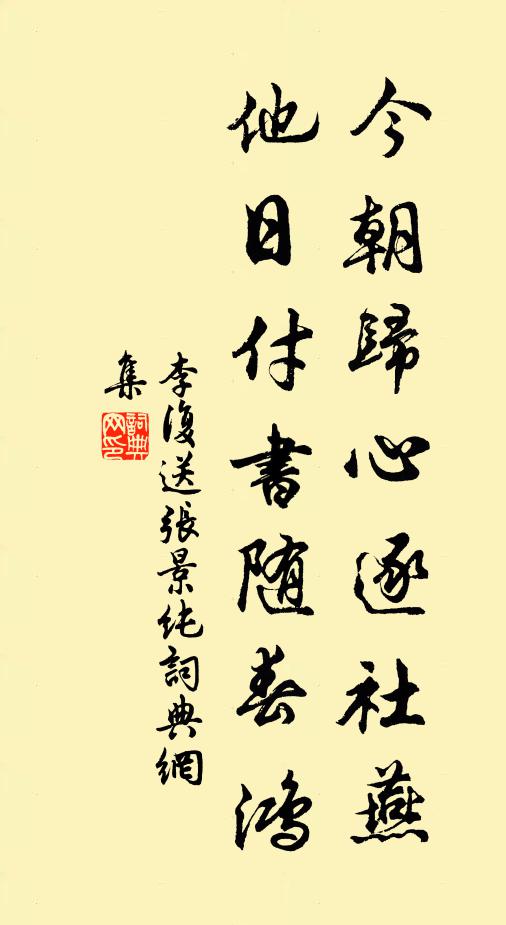 今朝歸心逐社燕
他日付書随春鴻
李復送張景純詞典網
集
詞典网印